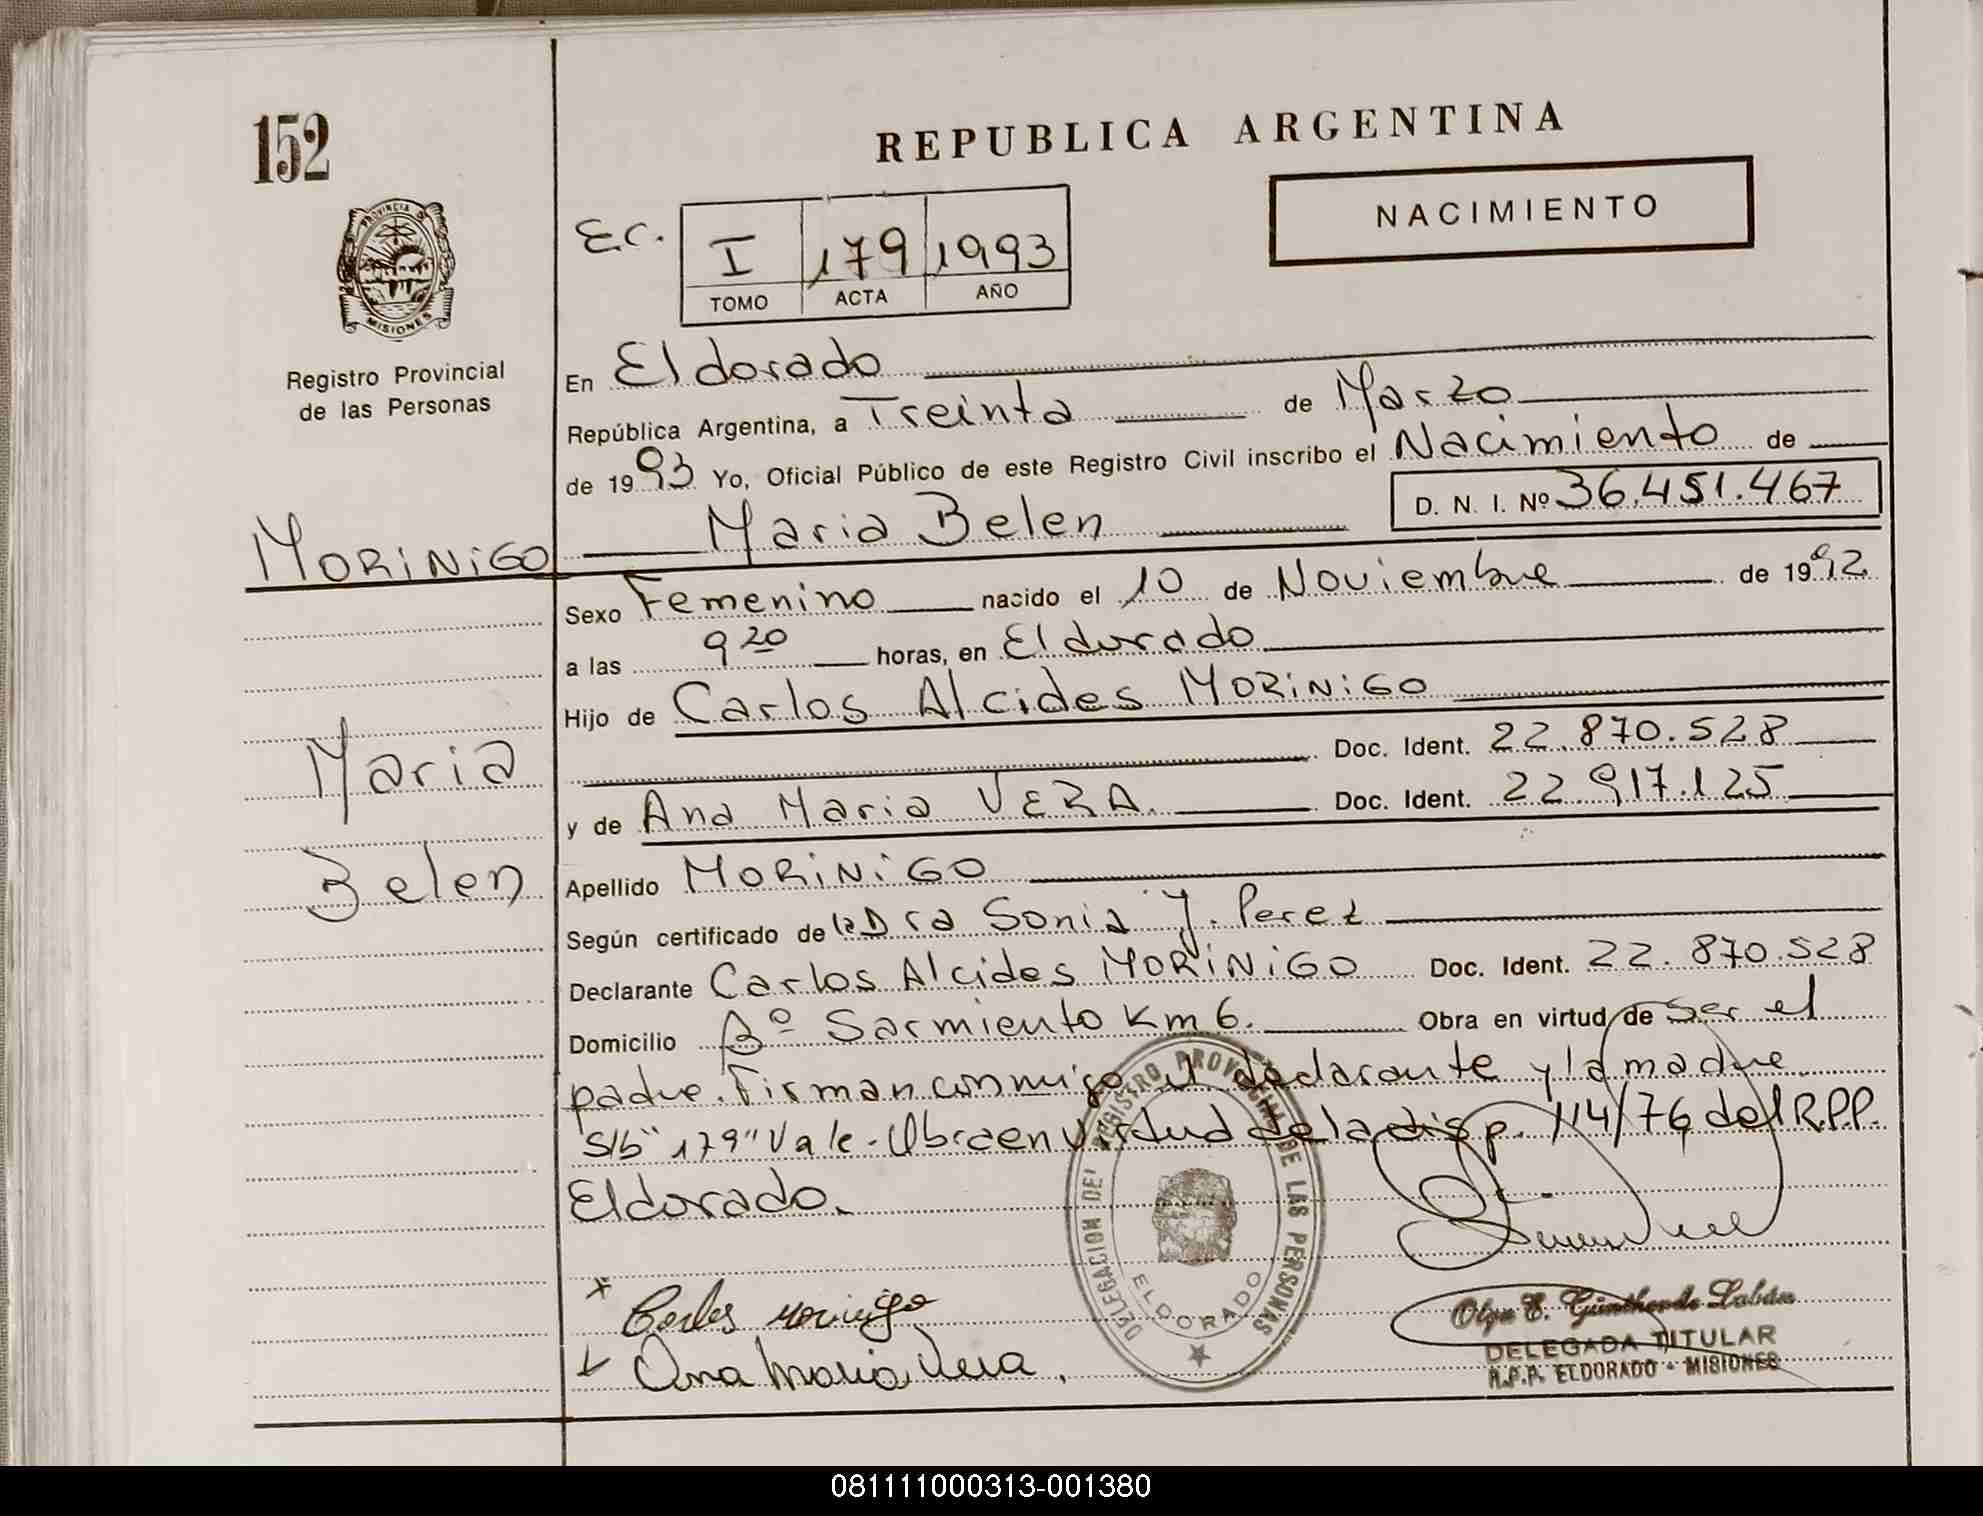 152
REPUBLICA ARGENTINA
NACIMIENTO
PROVINCIA DE
MISIONES
Registro Provincial
de las Personas
Ec. I 179 1993
TOMO ACTA AÑO
En Eldorado
República Argentina, a Treinta de Marzo
de 1993 Yo, Oficial Público de este Registro Civil inscribo el Nacimiento de
D. N. I. Nº 36.451.467
MORiNiGO Maria Belen
Sexo Femenino nacido el 10 de Noviembre de 1992
a las 9 20 horas, en Eldorado
Hijo de Carlos Alcides MORiNiGO
Doc. Ident. 22.870.528
y de Ana Maria VERA. Doc. Ident. 22.917.125
Maria
Belen
Apellido MORiNiGO
Según certificado de la Dra Sonia Y. Perez
Declarante Carlos Alcides MORiNiGO Doc. Ident. 22.870.528
Domicilio Bº Sarmiento Km 6. Obra en virtud de ser el
padre. Firman conmigo el declarante y la madre
S/b "179" Vale. Obra en virtud de la disp. 114/76 del R.P.P.
Eldorado.
DELEGACION DEL REGISTRO PROVINCIAL DE LAS PERSONAS
ELDORADO
Carlos Morinigo
Ana Maria Vera.
Olga E. Günther de Labán
DELEGADA TITULAR
R.P.P. ELDORADO - MISIONES
081111000313-001380